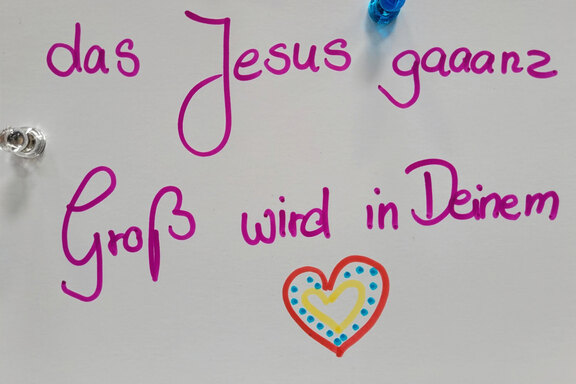 das Jesus gaaanz
Groß wird in Deinem